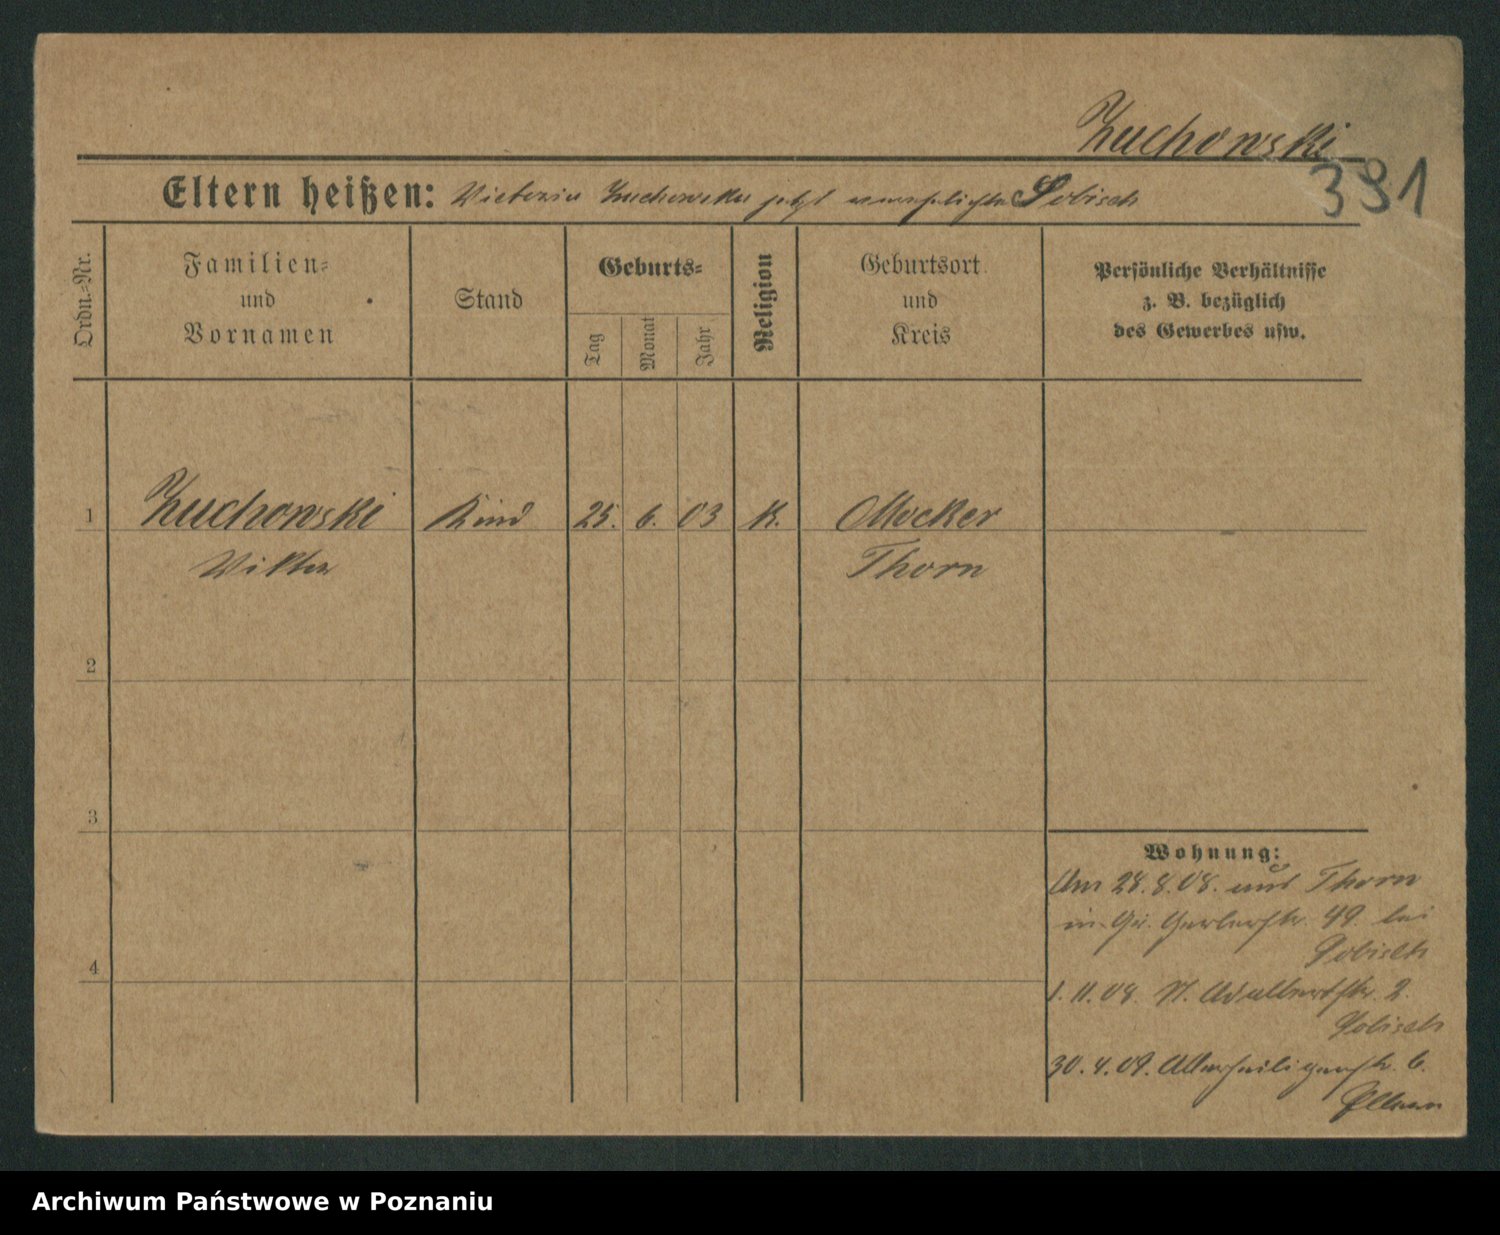 Zuchowski
391
Eltern heißen: Victoria Zuchowska jetzt verehelichte Sobisch
Ordn.=Nr.
Familien=
und
Vornamen
Stand
Geburts=
Tag
Monat
Jahr
Religion
Geburtsort
und
Kreis
Persönliche Verhältnisse
z. B. bezüglich
des Gewerbes usw.
1 Zuchowski Kind 25. 6. 03 K. Mocker
Viktor Thorn
2
3
4
Wohnung:
Am 28.8.08. aus Thorn
in Gr. Gerberstr. 49 bei
Sobisch
1.11.08. St. Adalbertstr. 2.
Sobisch
30.4.09. Allerheiligenstr. 6.
Eltern
Archiwum Państwowe w Poznaniu